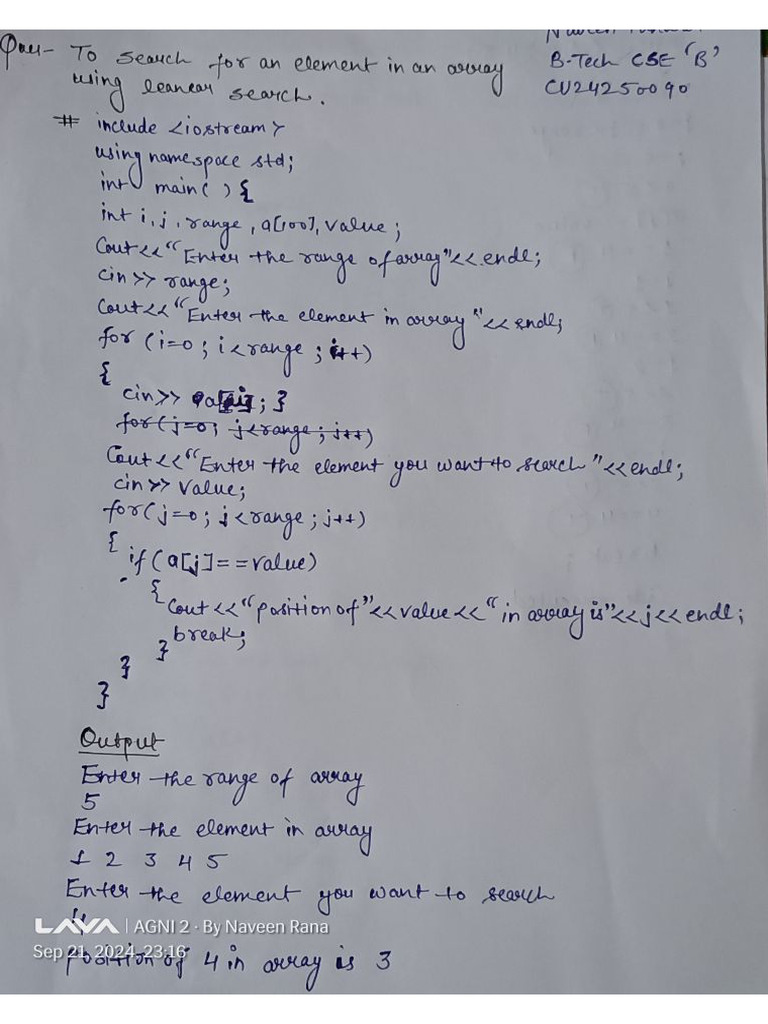 Ques- To search for an element in an array
using leanear search.
B-Tech CSE 'B'
CU24250090
# include <iostream>
using namespace std;
int main( ) {
int i, j, range, a[100], value;
Cout<<"Enter the range of array"<<endl;
cin>> range;
Cout<<"Enter the element in array "<<endl;
for (i=0 ; i<range ; i++)
{
cin>> a[i]; }
for(j=0; j<range ; j++)
Cout<<"Enter the element you want to search "<<endl;
cin>> value;
for(j=0 ; j<range ; j++)
{
if (a[j]==value)
{
Cout<<"position of"<<value<<"in array is"<<j<<endl;
break;
}
}
}
Output
Enter the range of array
5
Enter the element in array
1 2 3 4 5
Enter the element you want to search
4
LAVA | AGNI 2 · By Naveen Rana
Sep 21, 2024, 23:16
position of 4 in array is 3